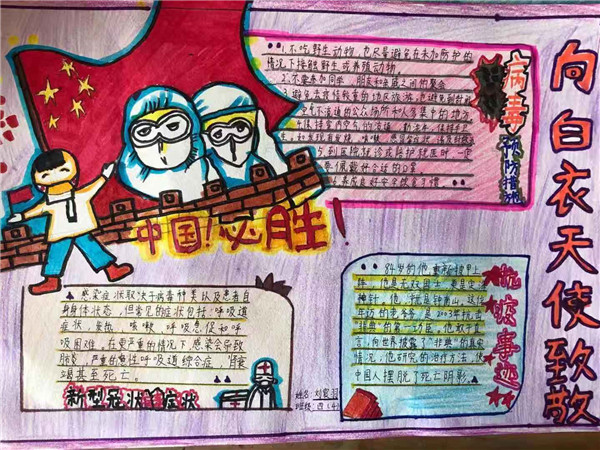 向白衣天使致敬
病毒
预防措施
1.不吃野生动物,也尽量避免在未加防护的
情况下接触野生或养殖动物。
2.不要参加同学、朋友和亲属之间的聚会
3.避免去疫情较重的地区旅游,也避免到
气不流通的公众场所和人多集中的地方
养成良好安全饮食习惯。
中国!必胜!
感染症状取决于病毒种类以及患者自
身体状态,但常见的症状包括:呼吸道
症状、发热、咳嗽、呼吸急促和呼
吸困难。在更严重的情况下,感染会导致
肺炎,严重的急性呼吸道综合症,肾衰
竭甚至死亡。
新型冠状 症状
姓名:刘宸羽
班级:四(4)
抗疫事迹
84岁的他重新披甲上
阵,他是无双国士,更是定海
神针,他就是钟南山,这位
年迈的老爷爷,是2003年抗击
非典的第一功臣,他敢于直
言,向世界披露了"非典"的真实
情况,他研究的治疗方法,使
中国人摆脱了死亡阴影